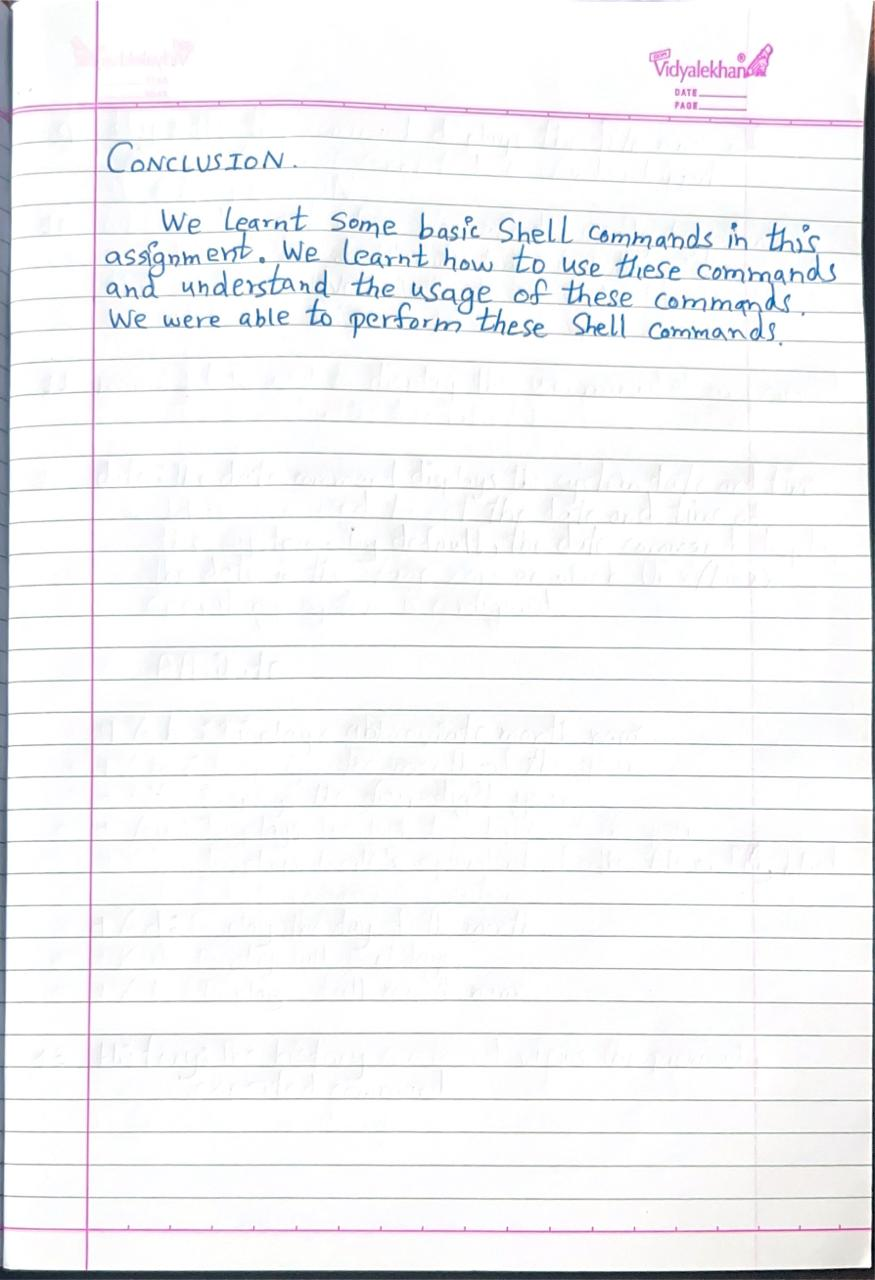 Vidyalekhan
DATE
PAGE
CONCLUSION.
We learnt some basic Shell commands in this
assignment. We learnt how to use these commands
and understand the usage of these commands.
We were able to perform these Shell commands.